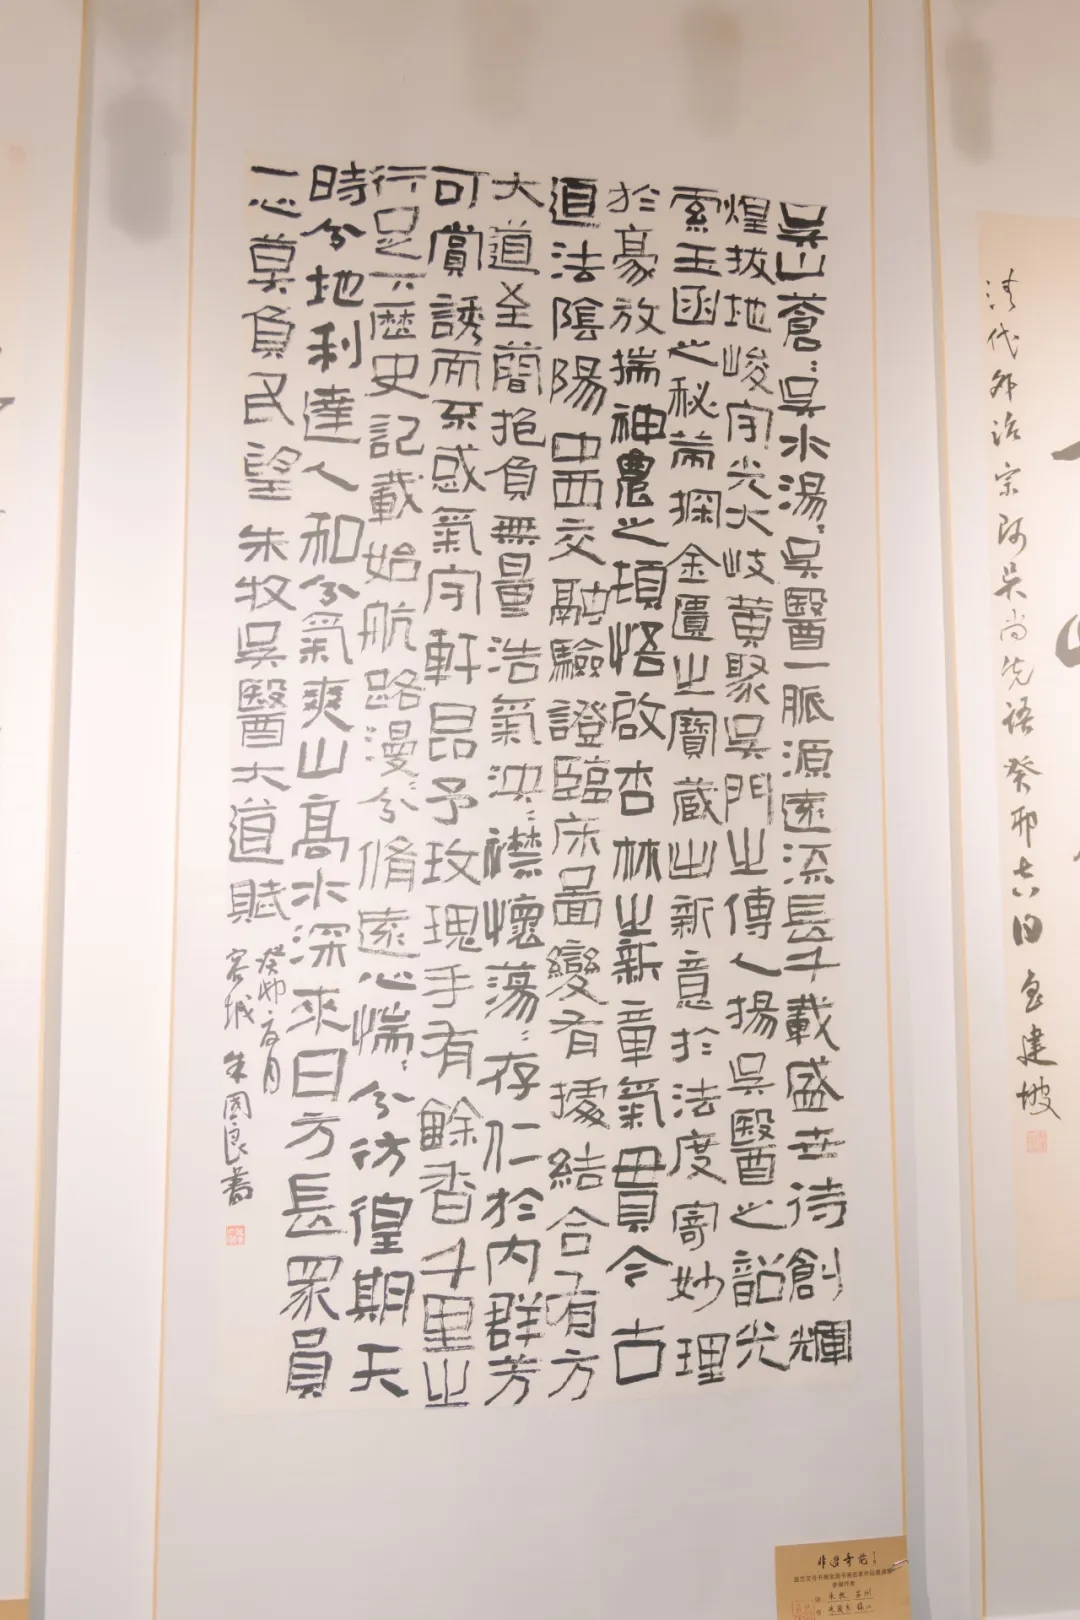 吳山蒼〻吳水湯〻吳醫一脈源遠流長千載盛世待創輝
煌拔地峻宇光大岐黄聚吳門之傳人揚吳醫之韶光
索玉函之秘探金匱之寶藏出新意於法度寄妙理
於豪放揣神農之悟啟杏林之新章氣貫今古
道法陰陽中西交融驗證臨床圖變有據結合有方
大道至簡抱負無量浩氣泱〻襟懷蕩〻存仁於内群芳
可賞誘而不惑氣宇軒昂予玫瑰手有餘香千里之
行足下歷史記載始航路漫〻兮脩遠心惴〻兮彷徨期天
時兮地利達人和兮氣爽山高水深來日方長眾員
一心莫負民望 朱牧吳醫大道賦
癸卯六月
容城 朱國良書
清代外治宗師吳尚先語 癸卯吉日 建坡